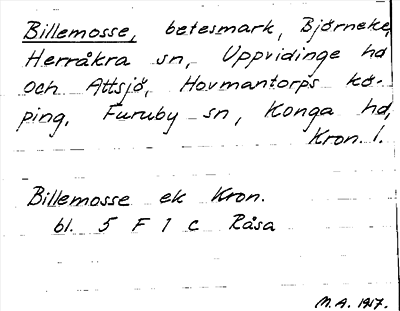 Billemosse, betesmark, Björneke,
Herråkra sn, Uppvidinge hd
och Attsjö, Hovmantorps kö-
ping, Furuby sn, Konga hd,
Kron. l.
Billemosse ek Kron.
bl. 5 F 1 c Råsa
M.A. 1967.